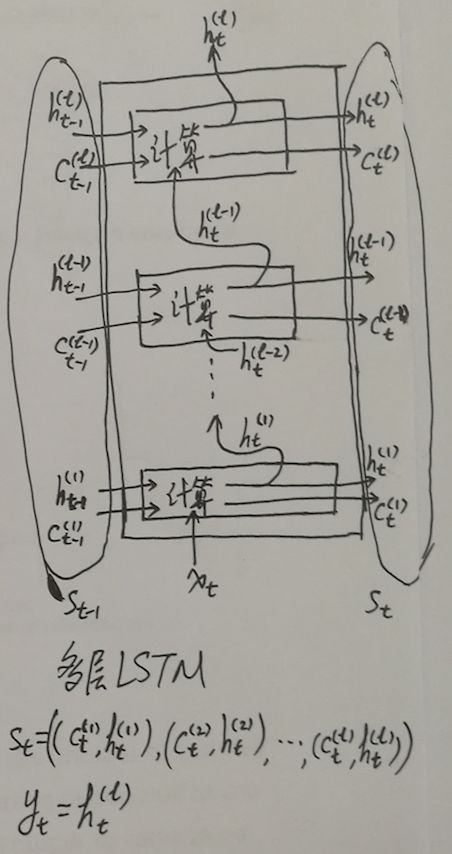 h_t^{(l)}
h_{t-1}^{(l)} 计算 h_t^{(l)}
C_{t-1}^{(l)} C_t^{(l)}
h_t^{(l-1)}
h_{t-1}^{(l-1)} 计算 h_t^{(l-1)}
C_{t-1}^{(l-1)} C_t^{(l-1)}
h_t^{(l-2)}
h_t^{(1)}
h_{t-1}^{(1)} 计算 h_t^{(1)}
C_{t-1}^{(1)} C_t^{(1)}
x_t
S_{t-1} S_t
多层LSTM
S_t=((C_t^{(1)},h_t^{(1)}),(C_t^{(2)},h_t^{(2)}),…,(C_t^{(l)},h_t^{(l)}))
y_t=h_t^{(l)}